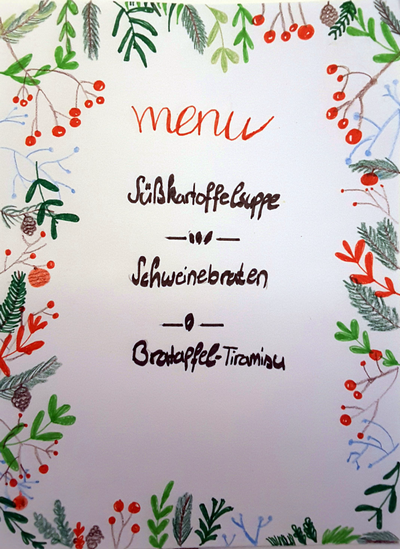 menu
Süßkartoffelsuppe
Schweinebraten
Bratapfel-Tiramisu